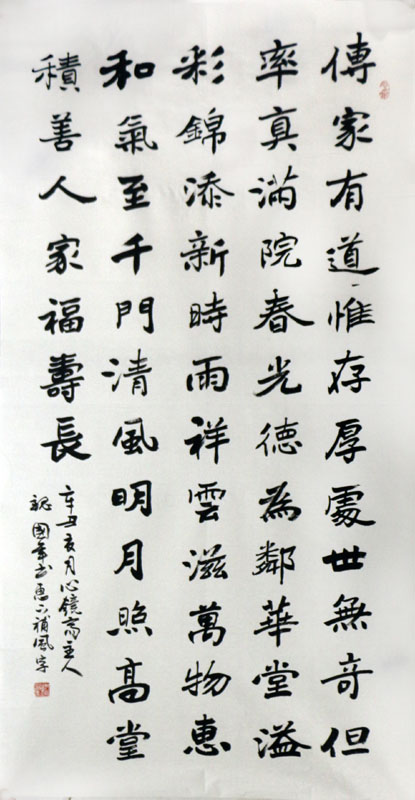 傳家有道惟存厚處世無奇但
率真滿院春光德為鄰華堂溢
彩錦添新時雨祥雲滋萬物惠
和氣至千門清風明月照高堂
積善人家福壽長
辛丑亥月心鏡齋主人
國年书惠下補風字